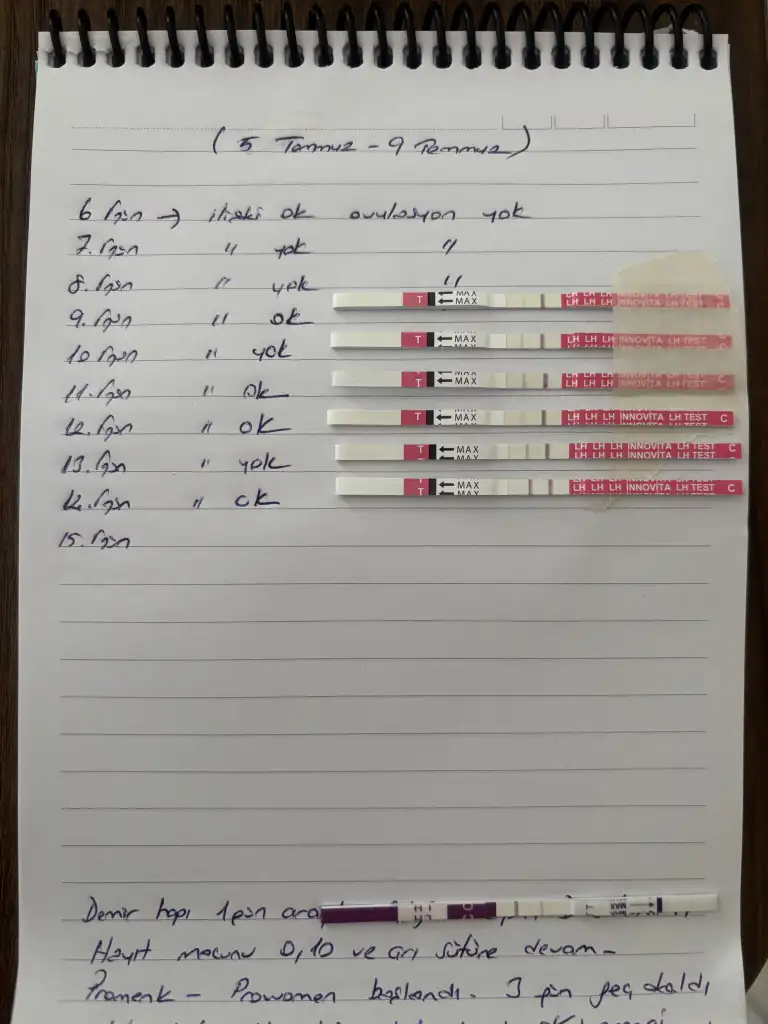 ( 5 Temmuz - 9 Temmuz )
6 gün → ilişki ok ovulasyon yok
7. gün " yok "
8. gün " yok "
9. gün " ok
10 gün " yok
11. gün " ok
12. gün " ok
13. gün " yok
14. gün " ok
15. gün
T MAX MAX LH LH LH INNOVITA LH TEST C
T MAX LH LH LH INNOVITA LH TEST C
T MAX MAX LH LH LH INNOVITA LH TEST C
T MAX LH LH LH INNOVITA LH TEST C
T MAX MAX LH LH LH INNOVITA LH TEST C
T MAX LH LH LH INNOVITA LH TEST C
Demir hapı 1 gün ara
MAX
Hayıt macunu 0,10 ve arı sütüne devam-
Promenk - Prowomen başlandı. 3 gün geç kaldı